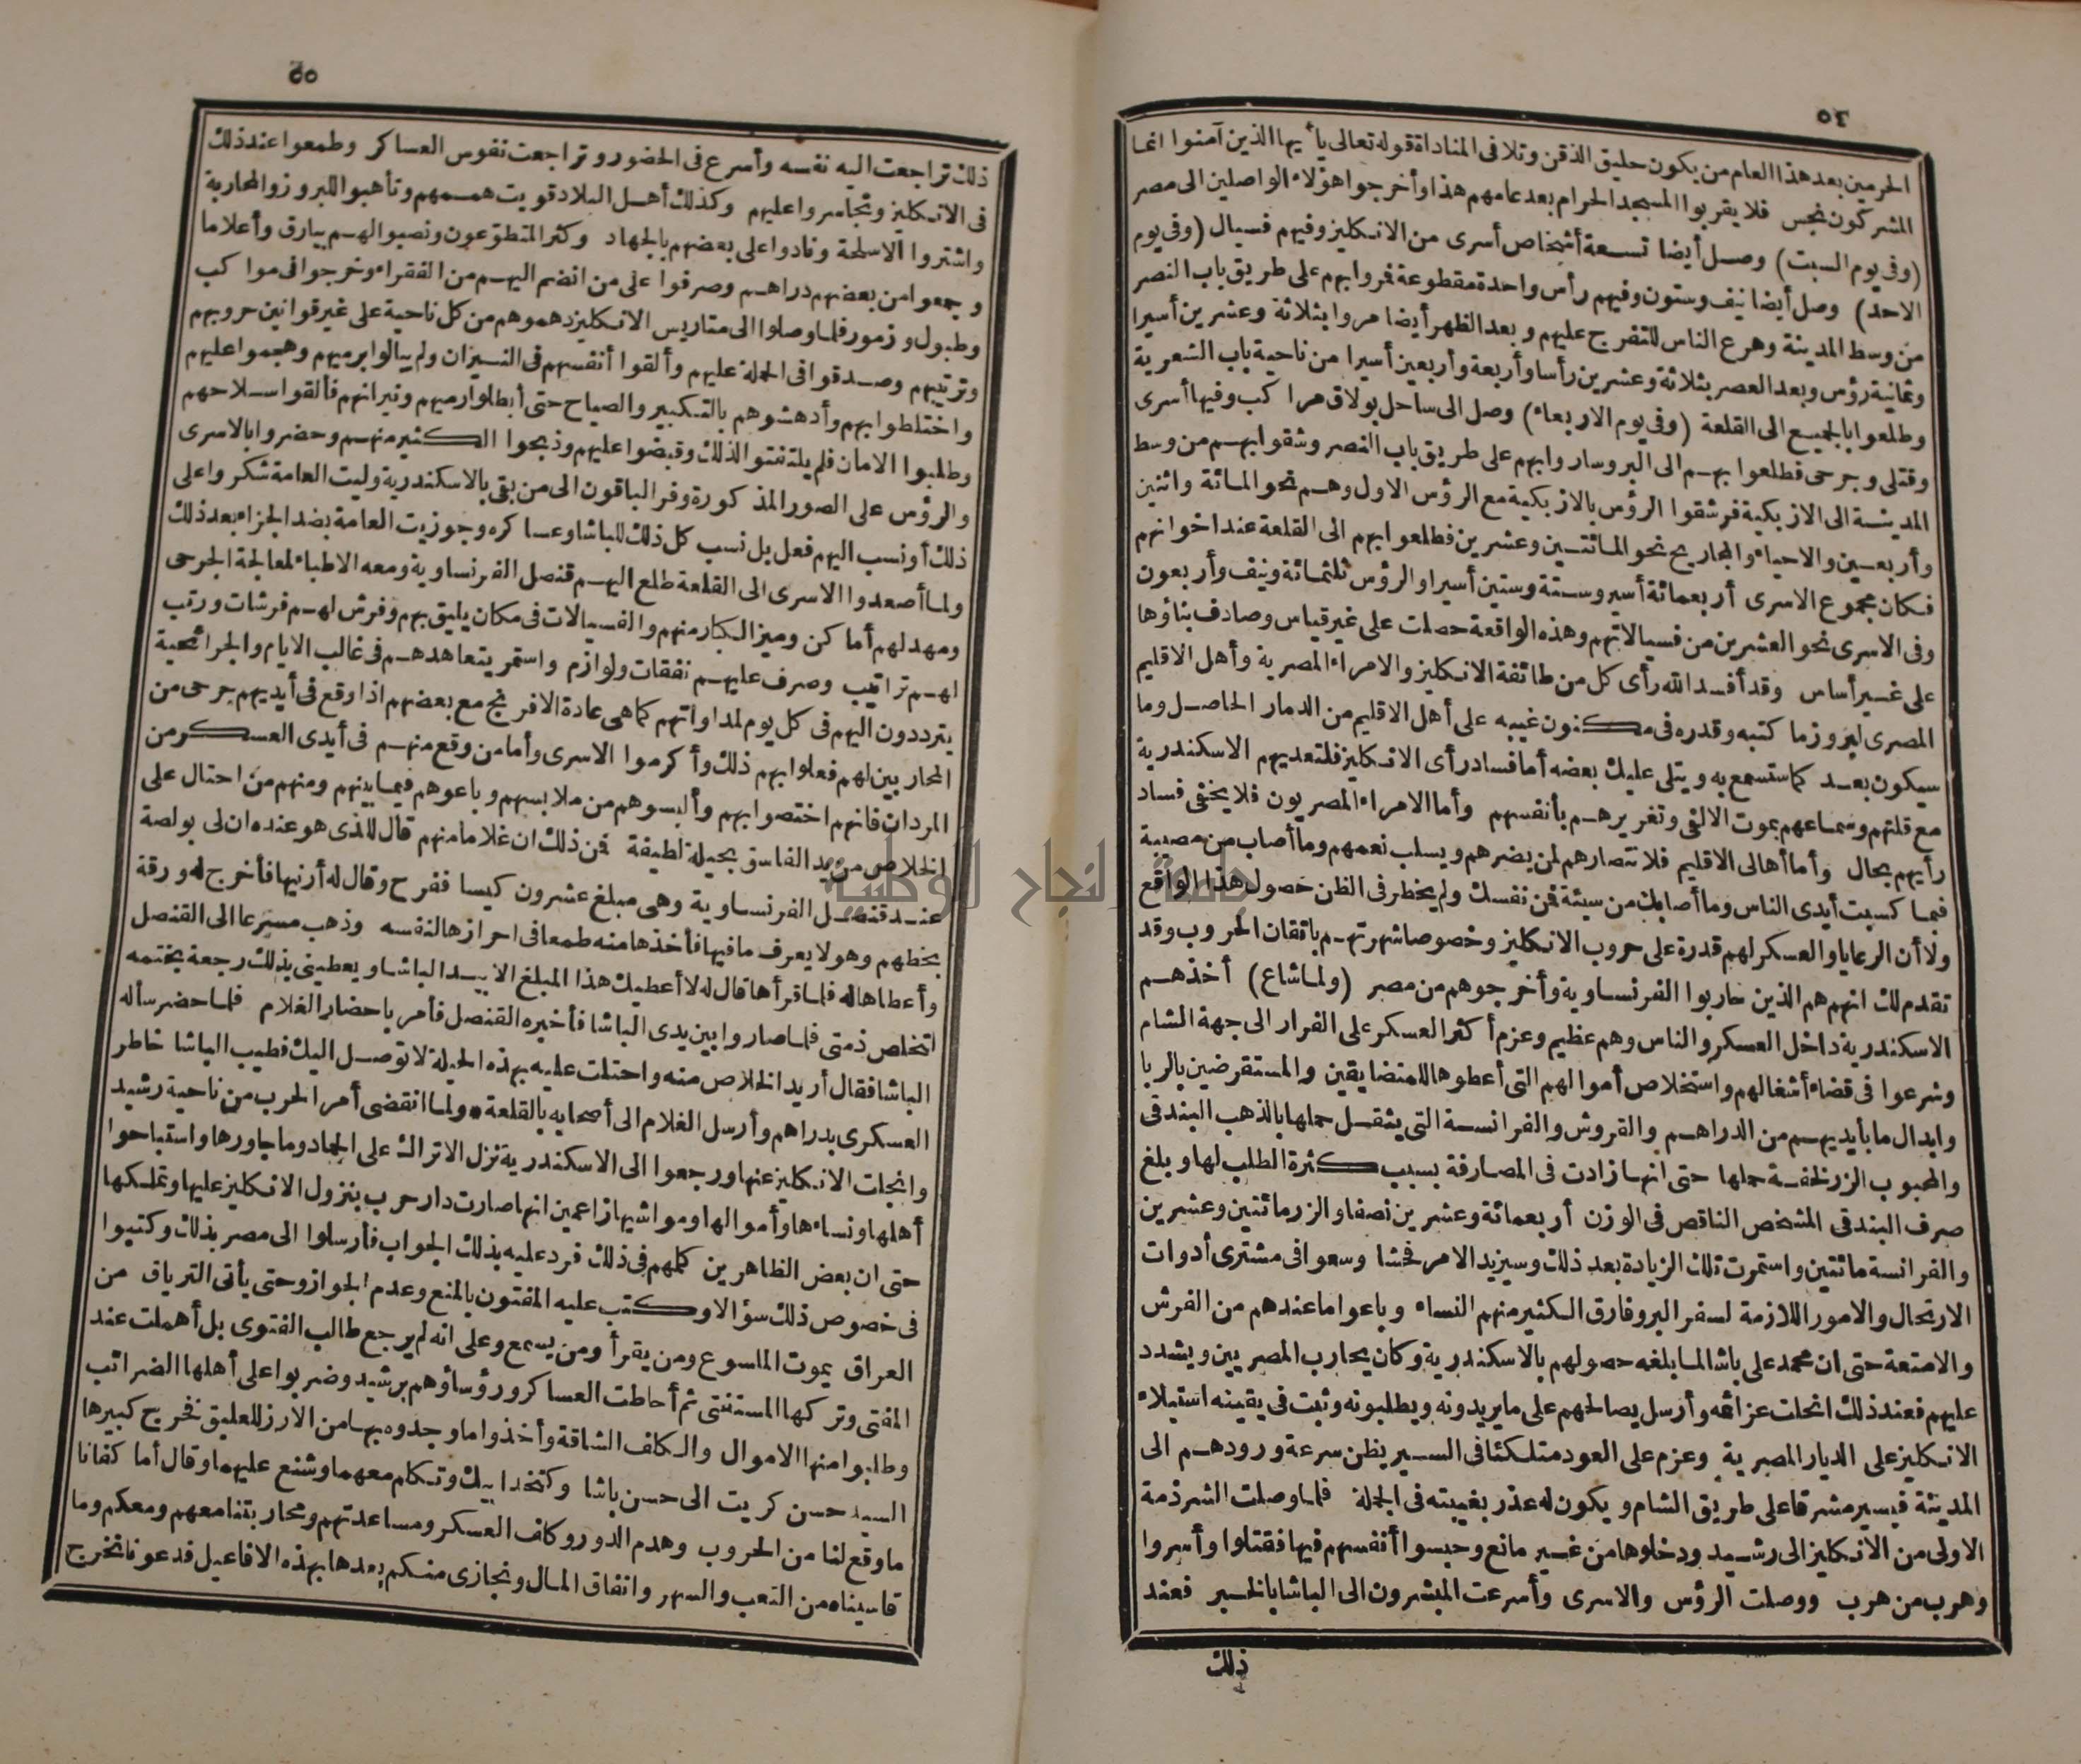 ٥٤
الحرمين بعد هذا العام من يكون حليق الذقن وتلا فى المناداة قوله تعالى يا أيها الذين آمنوا انما
المشركون نجس فلا يقربوا المسجد الحرام بعد عامهم هذا وأخرجوا هؤلاء الواصلين الى مصر
(وفى يوم السبت) وصل أيضا تسعة أشخاص أسرى من الانكليز وفيهم فسيال (وفى يوم
الاحد) وصل أيضا نيف وستون وفيهم رأس واحدة مقطوعة فمروا بهم على طريق باب النصر
من وسط المدينة وهرع الناس للتفرج عليهم وبعد الظهر أيضا مروا بثلاثة وعشرين أسيرا
وثمانية رؤس وبعد العصر بثلاثة وعشرين رأسا وأربعة وأربعين أسيرا من ناحية باب الشعرية
وطلعوا بالجميع الى القلعة (وفى يوم الاربعاء) وصل الى ساحل بولاق مراكب وفيها أسرى
وقتلى وجرحى فطلعوا بهم الى البر وساروا بهم على طريق باب النصر وشقوا بهم من وسط
المدينة الى الازبكية فرشقوا الرؤس بالازبكية مع الرؤس الاول وهم نحو المائة واثنين
وأربعين والاحياء والمجاريح نحو المائتين وعشرين فطلعوا بهم الى القلعة عند اخوانهم
فكان مجموع الاسرى أربعمائة أسير وستة وستين أسيرا والرؤس ثلثمائة ونيف وأربعون
وفى الاسرى نحو العشرين من فسيالاتهم وهذه الواقعة حصلت على غير قياس وصادف بناؤها
على غير أساس وقد أفسد الله رأى كل من طائفة الانكليز والامراء المصرية وأهل الاقليم
المصرى لبروز ما كتبه وقدره فى مكنون غيبه على أهل الاقليم من الدمار الحاصل وما
سيكون بعد كما ستسمع به ويتلى عليك بعضه أما فساد رأى الانكليز فلتعديهم الاسكندرية
مع قلتهم وسماعهم بموت الالفى وتغريرهم بأنفسهم وأما الامراء المصريون فلا يخفى فساد
رأيهم بحال وأما أهالى الاقليم فلانتصارهم لمن يضرهم ويسلب نعمهم وما أصاب من مصيبة
فبما كسبت أيدى الناس وما أصابك من سيئة فمن نفسك ولم يخطر فى الظن حصول هذا الواقع
ولا أن الرعايا والعسكر لهم قدرة على حروب الانكليز وخصوصا شهرتهم باتقان الحروب وقد
تقدم لك انهم هم الذين حاربوا الفرنساوية وأخرجوهم من مصر (ولما شاع) أخذهم
الاسكندرية داخل العسكر والناس وهم عظيم وعزم أكثر العسكر على الفرار الى جهة الشام
وشرعوا فى قضاء أشغالهم واستخلاص أموالهم التى أعطوها للمتضايقين والمستقرضين بالربا
وابدال ما بأيديهم من الدراهم والقروش والفرانسة التى يثقل حملها بالذهب البندقى
والمحبوب الزر لخفة حملها حتى انها زادت فى المصارفة بسبب كثرة الطلب لها وبلغ
صرف البندقى المشخص الناقص فى الوزن أربعمائة وعشرين نصفا والزر مائتين وعشرين
والفرانسة مائتين واستمرت تلك الزيادة بعد ذلك وسيزيد الامر فحشا وسعوا فى مشترى أدوات
الارتحال والامور اللازمة لسفر البر وفارق الكثير منهم النساء وباعوا ما عندهم من الفرش
والامتعة حتى ان محمد على باشا لما بلغه حصولهم بالاسكندرية وكان يحارب المصريين ويشدد
عليهم فعند ذلك انحلت عزائمه وأرسل يصالحهم على ما يريدونه ويطلبونه وثبت فى يقينه استيلاء
الانكليز على الديار المصرية وعزم على العود متلكئا فى السير يظن سرعة ورودهم الى
المدينة فيسير مشرقا على طريق الشام ويكون له عذر بغيبته فى الجملة فلما وصلت الشرذمة
الاولى من الانكليز الى رشيد ودخلوها من غير مانع وحبسوا أنفسهم فيها فقتلوا وأسروا
وهرب من هرب ووصلت الرؤس والاسرى وأسرعت المبشرون الى الباشا بالخبر فعند
ذلك
٥٥
ذلك تراجعت اليه نفسه وأسرع فى الحضور وتراجعت نفوس العساكر وطمعوا عند ذلك
فى الانكليز وتجاسروا عليهم وكذلك أهل البلاد قويت هممهم وتأهبوا للبروز والمحاربة
واشتروا الاسلحة ونادوا على بعضهم بالجهاد وكثر المتطوعون ونصبوا لهم بيارق وأعلاما
وجمعوا من بعضهم دراهم وصرفوا على من انضم اليهم من الفقراء وخرجوا فى مواكب
وطبول وزمور فلما وصلوا الى متاريس الانكليز دهموهم من كل ناحية على غير قوانين حروبهم
وترتيبهم وصدقوا فى الحملة عليهم وألقوا أنفسهم فى النيران ولم يبالوا برميهم وهجموا عليهم
واختلطوا بهم وأدهشوهم بالتكبير والصياح حتى أبطلوا رميهم ونيرانهم فألقوا سلاحهم
وطلبوا الامان فلم يلتفتوا لذلك وقبضوا عليهم وذبحوا الكثير منهم وحضروا بالاسرى
والرؤس على الصور المذكورة وفر الباقون الى من بقى بالاسكندرية وليت العامة شكروا على
ذلك أو نسب اليهم فعل بل نسب كل ذلك للباشا وعساكره وجوزيت العامة بضد الجزاء بعد ذلك
ولما أصعدوا الاسرى الى القلعة طلع اليهم قنصل الفرنساوية ومعه الاطباء لمعالجة الجرحى
ومهد لهم أماكن وميز الكبار منهم والفسيالات فى مكان يليق بهم وفرش لهم فرشات ورتب
لهم تراتيب وصرف عليهم نفقات ولوازم واستمر يتعاهدهم فى غالب الايام والجرائحية
يترددون اليهم فى كل يوم لمداواتهم كما هى عادة الافرنج مع بعضهم اذا وقع فى أيديهم جرحى من
المحاربين لهم فعلوا بهم ذلك وأكرموا الاسرى وأما من وقع منهم فى أيدى العسكر من
المردان فانهم اختصوا بهم وألبسوهم من ملابسهم وباعوهم فيما بينهم ومنهم من احتال على
الخلاص من يد الفاسق بحيلة لطيفة فمن ذلك ان غلاما منهم قال للذى هو عنده ان لى بولصة
عند قنصل الفرنساوية وهى مبلغ عشرون كيسا ففرح وقال له أرنيها فأخرج له ورقة
بخطهم وهو لا يعرف ما فيها فأخذها منه طمعا فى احرازها لنفسه وذهب مسرعا الى القنصل
وأعطاها له فلما قرأها قال له لا أعطيك هذا المبلغ الا بيد الباشا ويعطينى بذلك رجعة بختمه
لتخلص ذمتى فلما صاروا بين يدى الباشا فأخبره القنصل فأمر باحضار الغلام فلما حضر سأله
الباشا فقال أريد الخلاص منه واحتلت عليه بهذه الحيلة لا توصل اليك فطيب الباشا خاطر
العسكرى بدراهم وأرسل الغلام الى أصحابه بالقلعة * ولما انقضى أمر الحرب من ناحية رشيد
وانجلت الانكليز عنها ورجعوا الى الاسكندرية نزل الاتراك على الحماد وما جاورها واستباحوا
أهلها ونساءها وأموالها ومواشيها زاعمين انها صارت دار حرب بنزول الانكليز عليها وتملكها
حتى ان بعض الظاهرين كلمهم فى ذلك فرد عليه بذلك الجواب فأرسلوا الى مصر بذلك وكتبوا
فى خصوص ذلك سؤالا وكتب عليه المفتون بالمنع وعدم الجواز وحتى يأتى الترياق من
العراق يموت الملسوع ومن يقرأ ومن يسمع وعلى انه لم يرجع طالب الفتوى بل أهملت عند
المفتى وتركها المستفتى ثم أحاطت العساكر ورؤساؤهم برشيد وضربوا على أهلها الضرائب
وطلبوا منها الاموال والكلف الشاقة وأخذوا ما وجدوه بها من الارز للعليق فخرج كبيرها
السيد حسن كريت الى حسن باشا وكتخدا بيك وتكلم معهما وشنع عليهما وقال أما كفانا
ما وقع لنا من الحروب وهدم الدور وكلف العسكر ومساعدتهم ومحاربتنا معهم ومعكم وما
قاسيناه من التعب والسهر وانفاق المال ونجازى منكم بعدها بهذه الافاعيل فدعونا نخرج
جامعة النجاح الوطنية